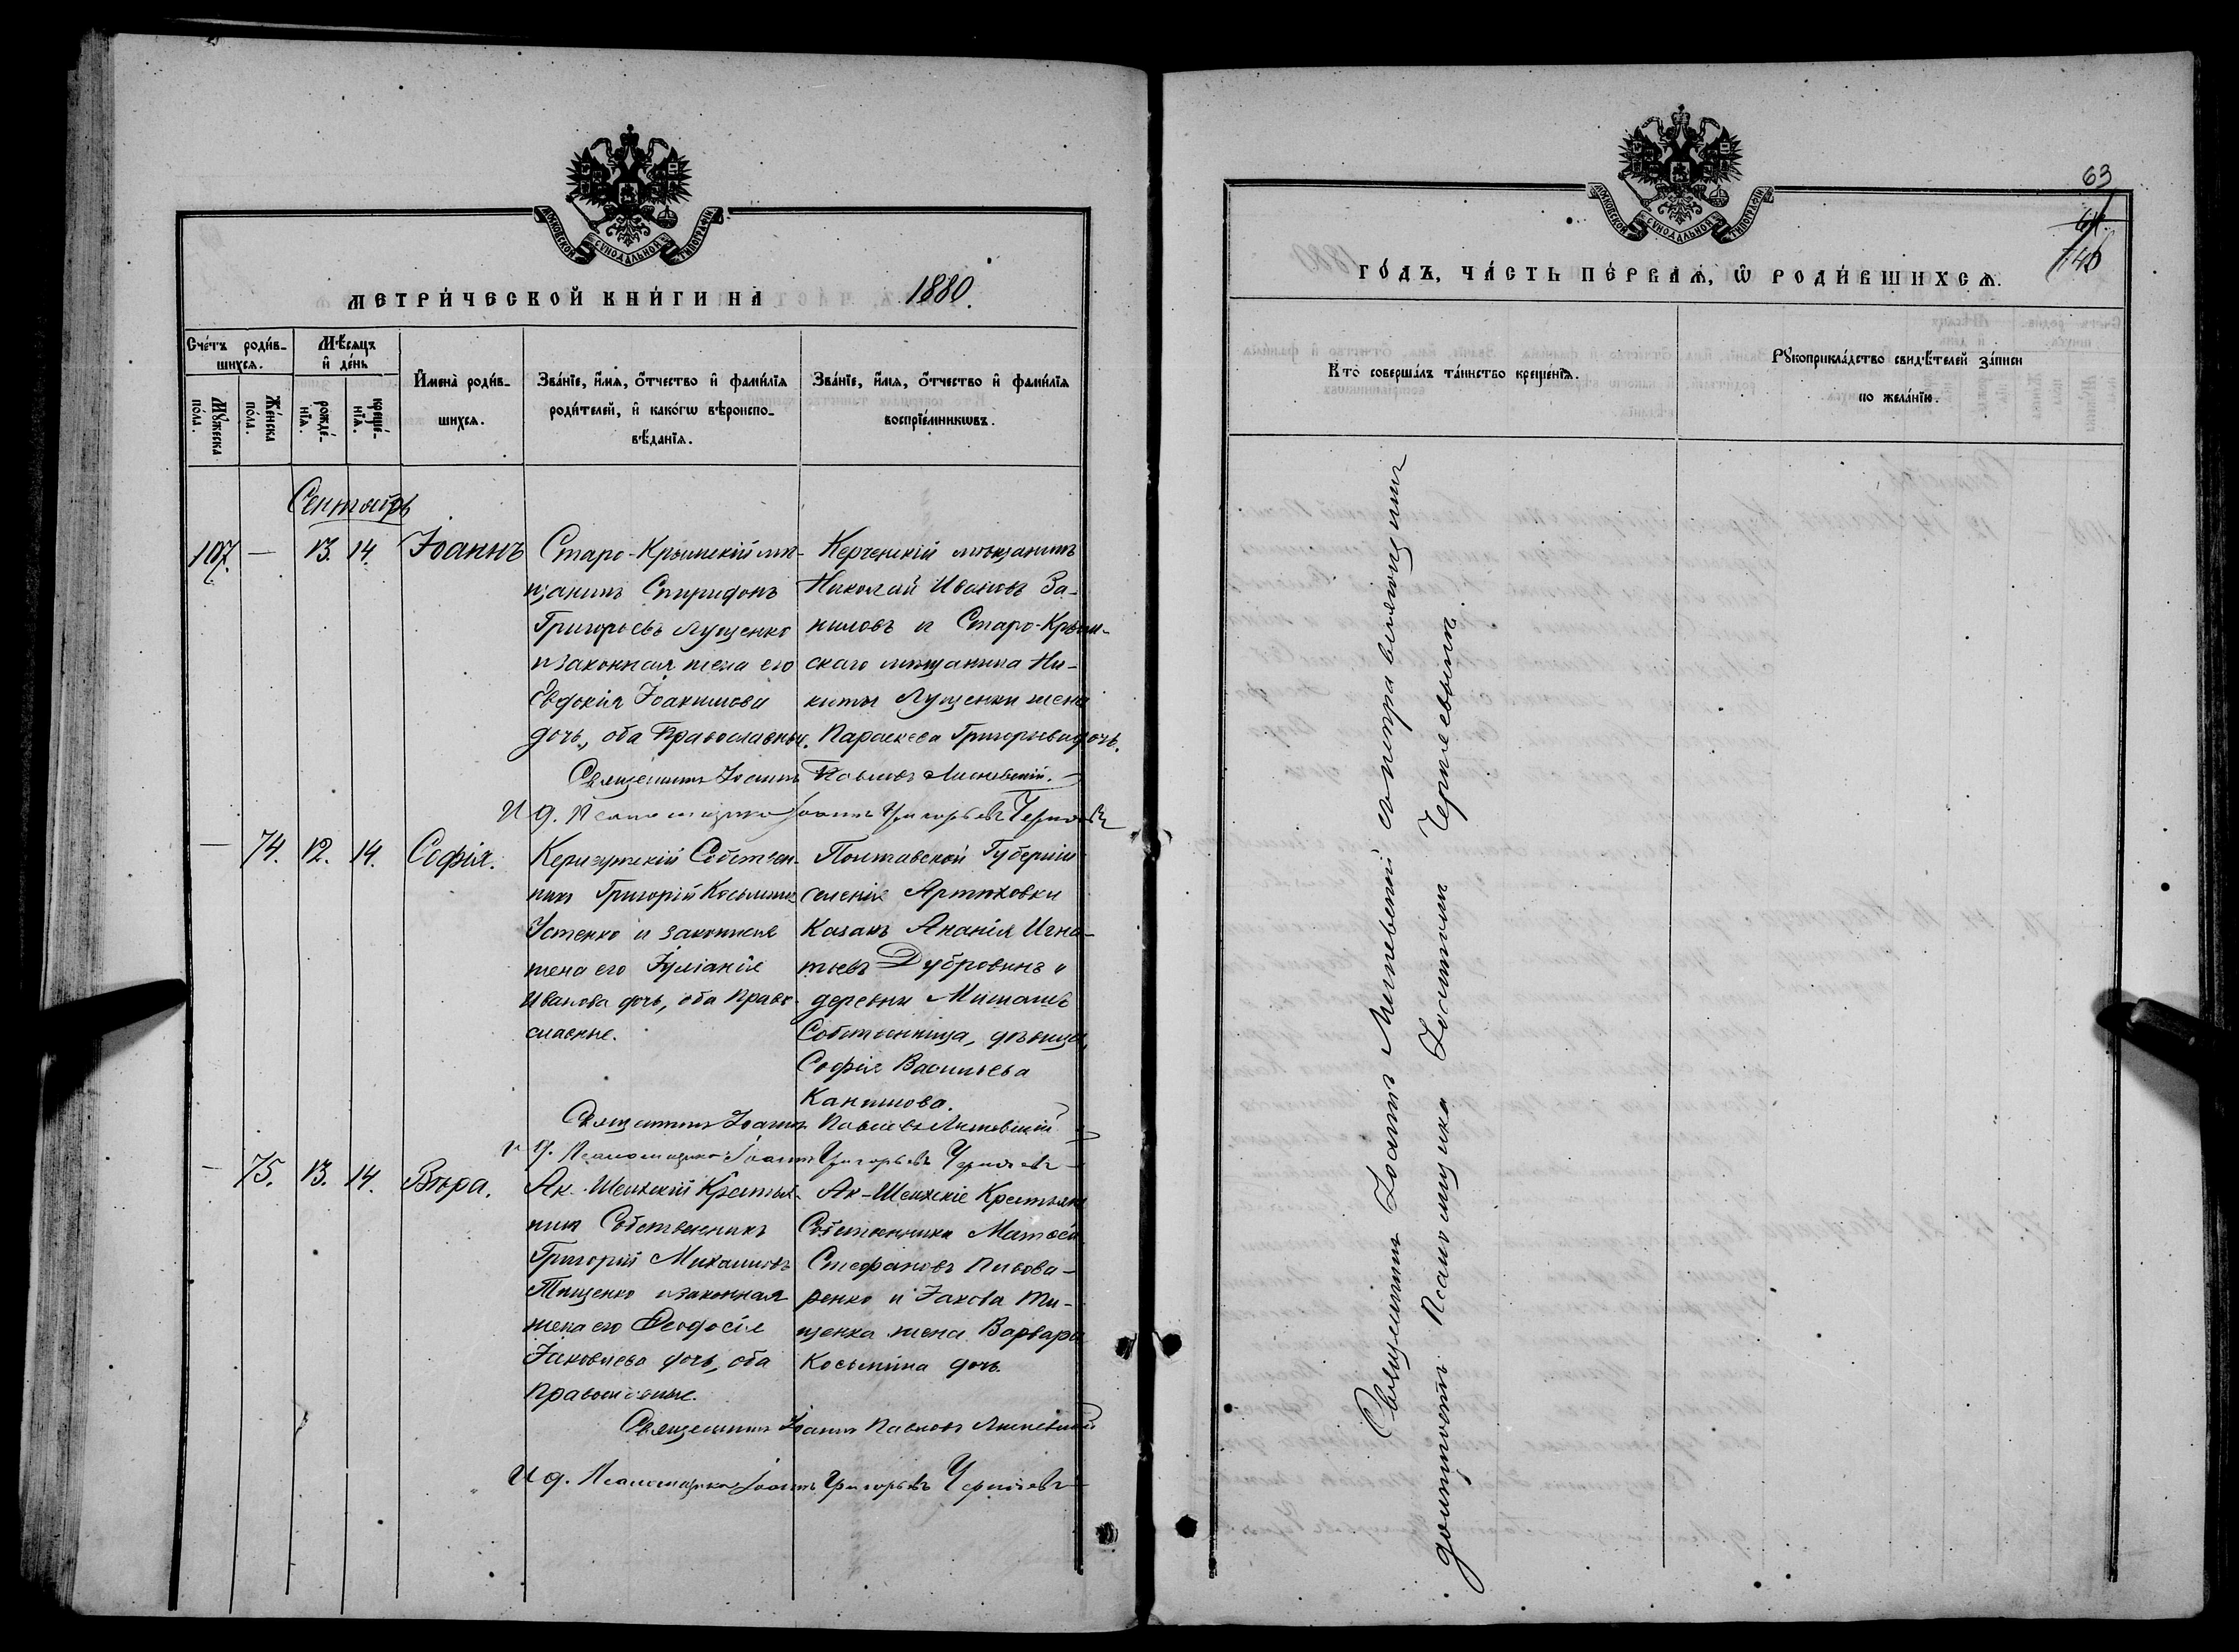 МОСКОВСКОЙ СѴНОДАЛЬНОЙ ТИПОГРАФІИ
МЕТРИ́ЧЕСКОЙ КНИ́ГИ НА 1880.
Сче́тъ роди́в-
шихся.
Мѣ́сяцъ
и҆ де́нь
Мꙋ́жеска
по́ла.
Же́нска
по́ла.
рожде́-
нїѧ.
креще́-
нїѧ.
И҆мена̀ роди́в-
шихся.
Зва́нїе, и҆́мѧ, ѻ҆́тчество и҆ фами́лїѧ
роди́телей, и҆ како́гѡ вѣроиспо-
вѣ́данїѧ.
Зва́нїе, и҆́мѧ, ѻ҆́тчество и҆ фами́лїѧ
воспрїе́мникѡвъ.
Сентябрь
107. — 13. 14. Іоаннъ
Старо-Крымскій мѣ-
щанинъ Спиридонъ
Григорьевъ Лущенко
и законная жена его
Евдокія Іоакимова
дочь, оба Православные.
Керченскій мѣщанинъ
Николай Ивановъ За-
ниловъ и Старо-Крым-
скаго мѣщанина Ни-
киты Лущенки жена
Параскева Григорьева дочь.
Священникъ Іоаннъ Павловъ
И д. Псаломщика Іоаннъ Григорьевъ
— 74. 12. 14. Софія.
Собствен-
никъ Григорій Косьминъ
Устенко и законная
жена его Іуліанія
Иванова дочь, оба Право-
славные.
Полтавской Губерніи
селенія Артюховки
Казакъ Ананія Игна-
тьевъ Дубровинъ и
деревни
Собственница, дѣвица,
Софія Васильева
Священникъ Іоаннъ Павловъ
и д. Псаломщика Іоаннъ Григорьевъ
— 75. 13. 14. Вѣра.
Ак-Шеихскій Крестья-
нинъ Собственникъ
Григорій Михаиловъ
Тищенко и законная
жена его Ѳеодосія
Іаковлева дочь, оба
Православные.
Ак-Шеихскіе Крестьяне
Собственники Матѳей
Стефановъ Пивова-
ренко и Іакова Ти-
щенка жена Варвара
Косьмина дочь.
Священникъ Іоаннъ Павловъ
И д. Псаломщика Іоаннъ Григорьевъ
63
МОСКОВСКОЙ СѴНОДАЛЬНОЙ ТИПОГРАФІИ
ГО́ДЪ, ЧА́СТЬ ПЕ́РВАѦ, Ѡ҆ РОДИ́ВШИХСѦ.
Кто̀ соверша́лъ та́инство креще́нїѧ.
Рꙋкоприкла́дство свидѣ́телей за́писи
по жела́нїю.
Священникъ Іоаннъ
должность Псаломщика